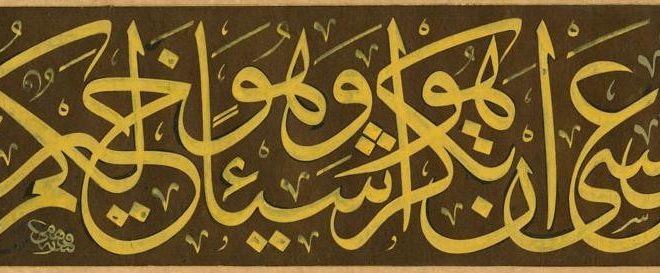 عسى ان تكرهوا شيئاً وهو خير لكم